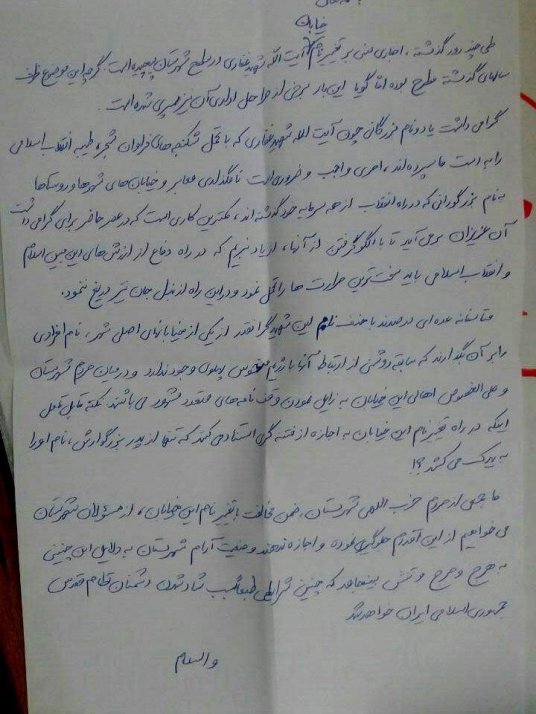 بسمه تعالی
خیابان
طی چند روز گذشته، اخباری مبنی بر تغییر نام آیت الله شهید غفاری در سطح شهرستان پیچیده است. گرچه این موضوع ظرف
سالهای گذشته مطرح بوده اما گویا این بار برخی از مراحل اداری آن نیز سپری شده است.
گرامی داشت یاد و نام بزرگانی چون آیت الله شهید غفاری که با تحمل شکنجه های فراوان شجره طیبه انقلاب اسلامی
را به دست ما سپرده اند، امری واجب و ضروری است نامگذاری معابر و خیابان های شهرها و روستاها
به نام بزرگورانی که در راه انقلاب از همه سرمایه خود گذشته اند، کمترین کاری است که در عصر حاضر برای گرامی داشت
آن عزیزان برمی آید تا با الگو گرفتن از آنها، از یاد نبریم که در راه دفاع از ارزش های دین مبین اسلام
و انقلاب اسلامی باید سخت ترین مرارت ها را تحمل نمود و در این راه از بذل جان نیز دریغ ننمود.
متاسفانه عده ای درصددند با حذف نام این شهید گرانقدر از یکی از خیابانهای اصلی شهر، نام افرادی
را بر آن بگذارند که سابقه روشنی از ارتباط آنها با رژیم منحوس پهلوی وجود ندارد و در میان مردم شهرستان
و علی الخصوص اهالی این خیابان به زایل نمودن وقف نامه های متعدد مشهور می باشند. نکته قابل تامل
اینکه در راه تغییر نام این خیابان به اجازه از فتنه گری استناد می کنند که تنها از پدر بزرگوارش، نام او را
به یدک می کشد؟!
ما جمعی از مردم حزب اللهی شهرستان، ضمن مخالفت با تغییر نام این خیابان، از مسئولان شهرستان
می خواهیم از این اقدام جلوگیری نموده و اجازه ندهند وضعیت آرام شهرستان به دلایل این چنینی
به هرج و مرج و تنش بینجامد که چنین شرایطی طبعا سبب شاد شدن دشمنان نظام مقدس
جمهوری اسلامی ایران خواهد شد
والسلام